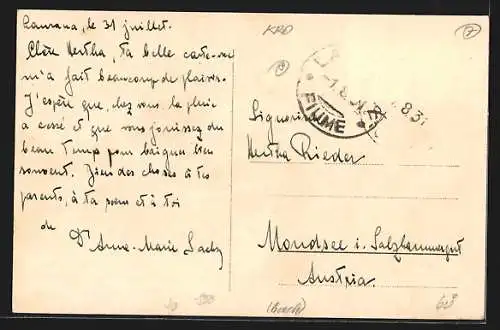 Laurana, le 31 juillet.
Chère Hertha, ta belle carte-vue
m'a fait beaucoup de plaisir.
J'espère que, chez vous la pluie
a cessé et que vous jouissez du
beau temps pour baigner bien
souvent. Bien des choses à tes
parents, à ta soeur et à toi
de
Anne-Marie
KRD
7
LA
-1.8.31
FIUME
8 31
Signorina
Hertha Rieder
Mondsee i. Salzkammergut
Austria.